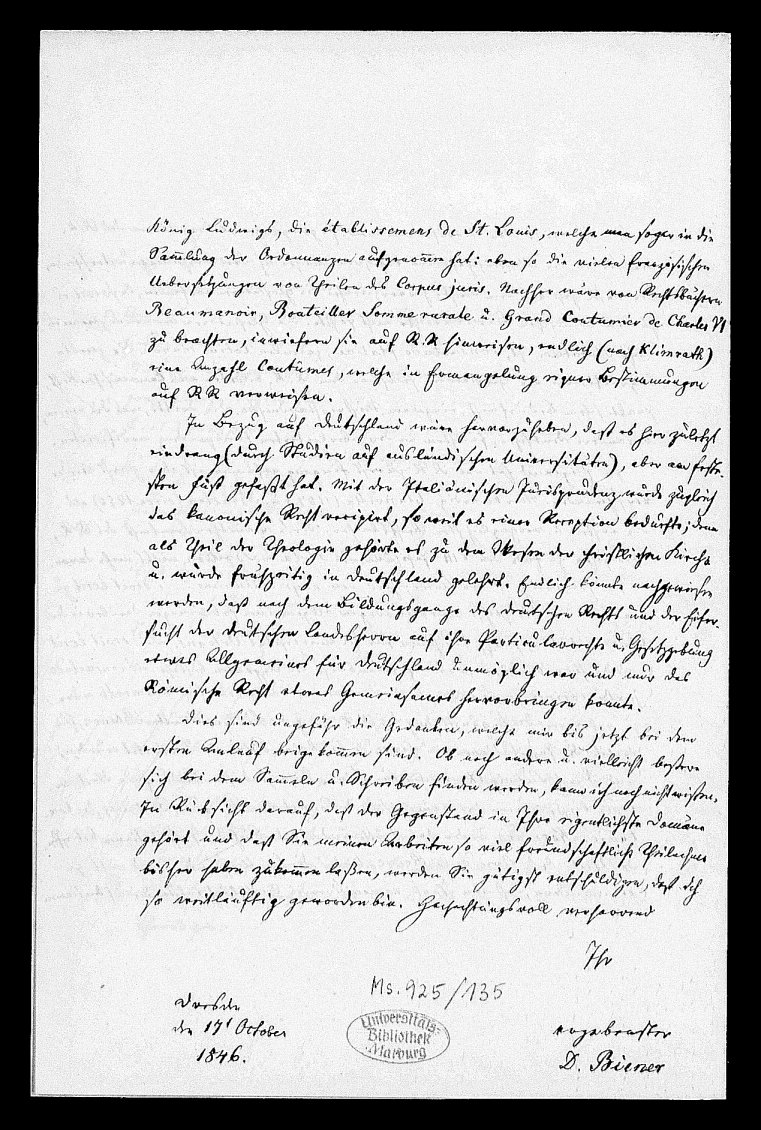 König Ludwigs, die établissemens de St. Louis, welche man sogar in die
Sammlung der Ordonnanzen aufgenommen hat; eben so die vielen französischen
Uebersetzungen von Theilen des Corpus juris. Nachher wäre von Rechtsbüchern
Beaumanoir, Bouteiller Somme rurale u. Grand Coutumier de Charles VI
zu beachten, inwiefern sie auf R.R. hinweisen, endlich (nach Klimrath)
eine Anzahl Coutümes, welche in Ermangelung eigner Bestimmungen
auf RR verweisen.
In Bezug auf Deutschland wäre hervorzuheben, daß es hier zuletzt
eindrang (durch Studien auf ausländischen Universitäten), aber am feste-
sten Fuß gefaßt hat. Mit der Italiänischen Jurisprudenz wurde zugleich
das kanonische Recht recipirt, so weit es einer Reception bedurfte; denn
als Theil der Theologie gehörte es zu dem Wesen der christlichen Kirche
u. wurde frühzeitig in Deutschland gelehrt. Endlich könnte nachgewiesen
werden, daß nach dem Bildungsgange des deutschen Rechts und der Eifer-
sucht der deutschen Landesherrn auf ihre Particularrechte u. Gesetzgebung
etwas Allgemeines für Deutschland unmöglich war und nur das
Römische Recht etwas Gemeinsames hervorbringen konnte.
Dies sind ungefähr die Gedanken, welche mir bis jetzt bei dem
ersten Anlauf beigekommen sind. Ob noch andere u. vielleicht bessere
sich bei dem Sammeln u. Schreiben finden werden, kann ich noch nicht wissen.
In Rücksicht darauf, daß der Gegenstand in Ihre eigentlichste Domäne
gehört und daß Sie meinen Arbeiten so viel freundschaftliche Theilnahme
bisher haben zukommen laßen, werden Sie gütigst entschuldigen, daß ich
so weitläuftig geworden bin. Hochachtungsvoll verharrend
Ihr
Ms. 925/135
Dresden
den 17t October
1846.
Universitäts-
Bibliothek
Marburg
ergebenster
D. Biener